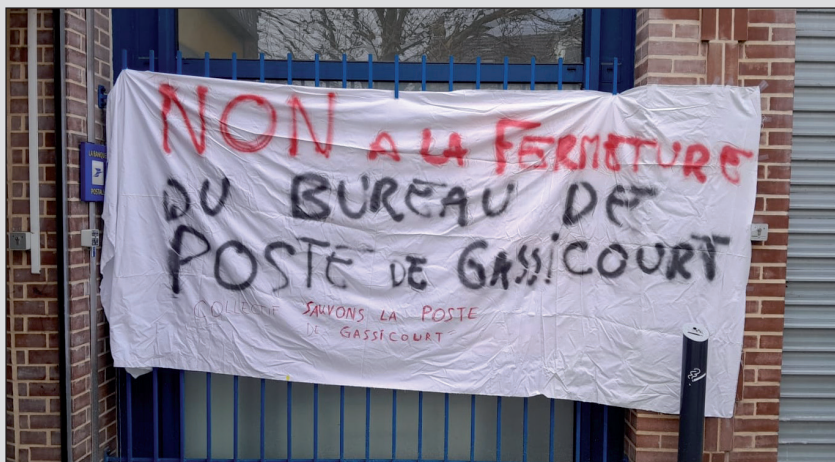 NON A LA FERMETURE
DU BUREAU DE
POSTE DE GASSICOURT
COLLECTIF SAUVONS LA POSTE
DE GASSICOURT